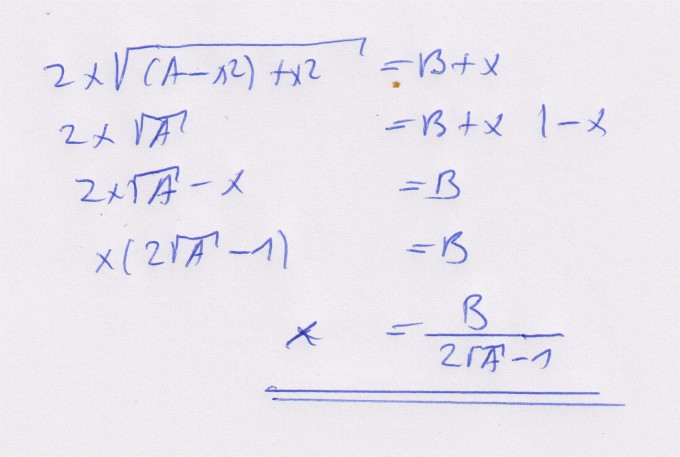 2x√((A-x²)+x²) = B+x
2x√A = B+x |-x
2x√A - x = B
x(2√A - 1) = B
x = B/(2√A - 1)